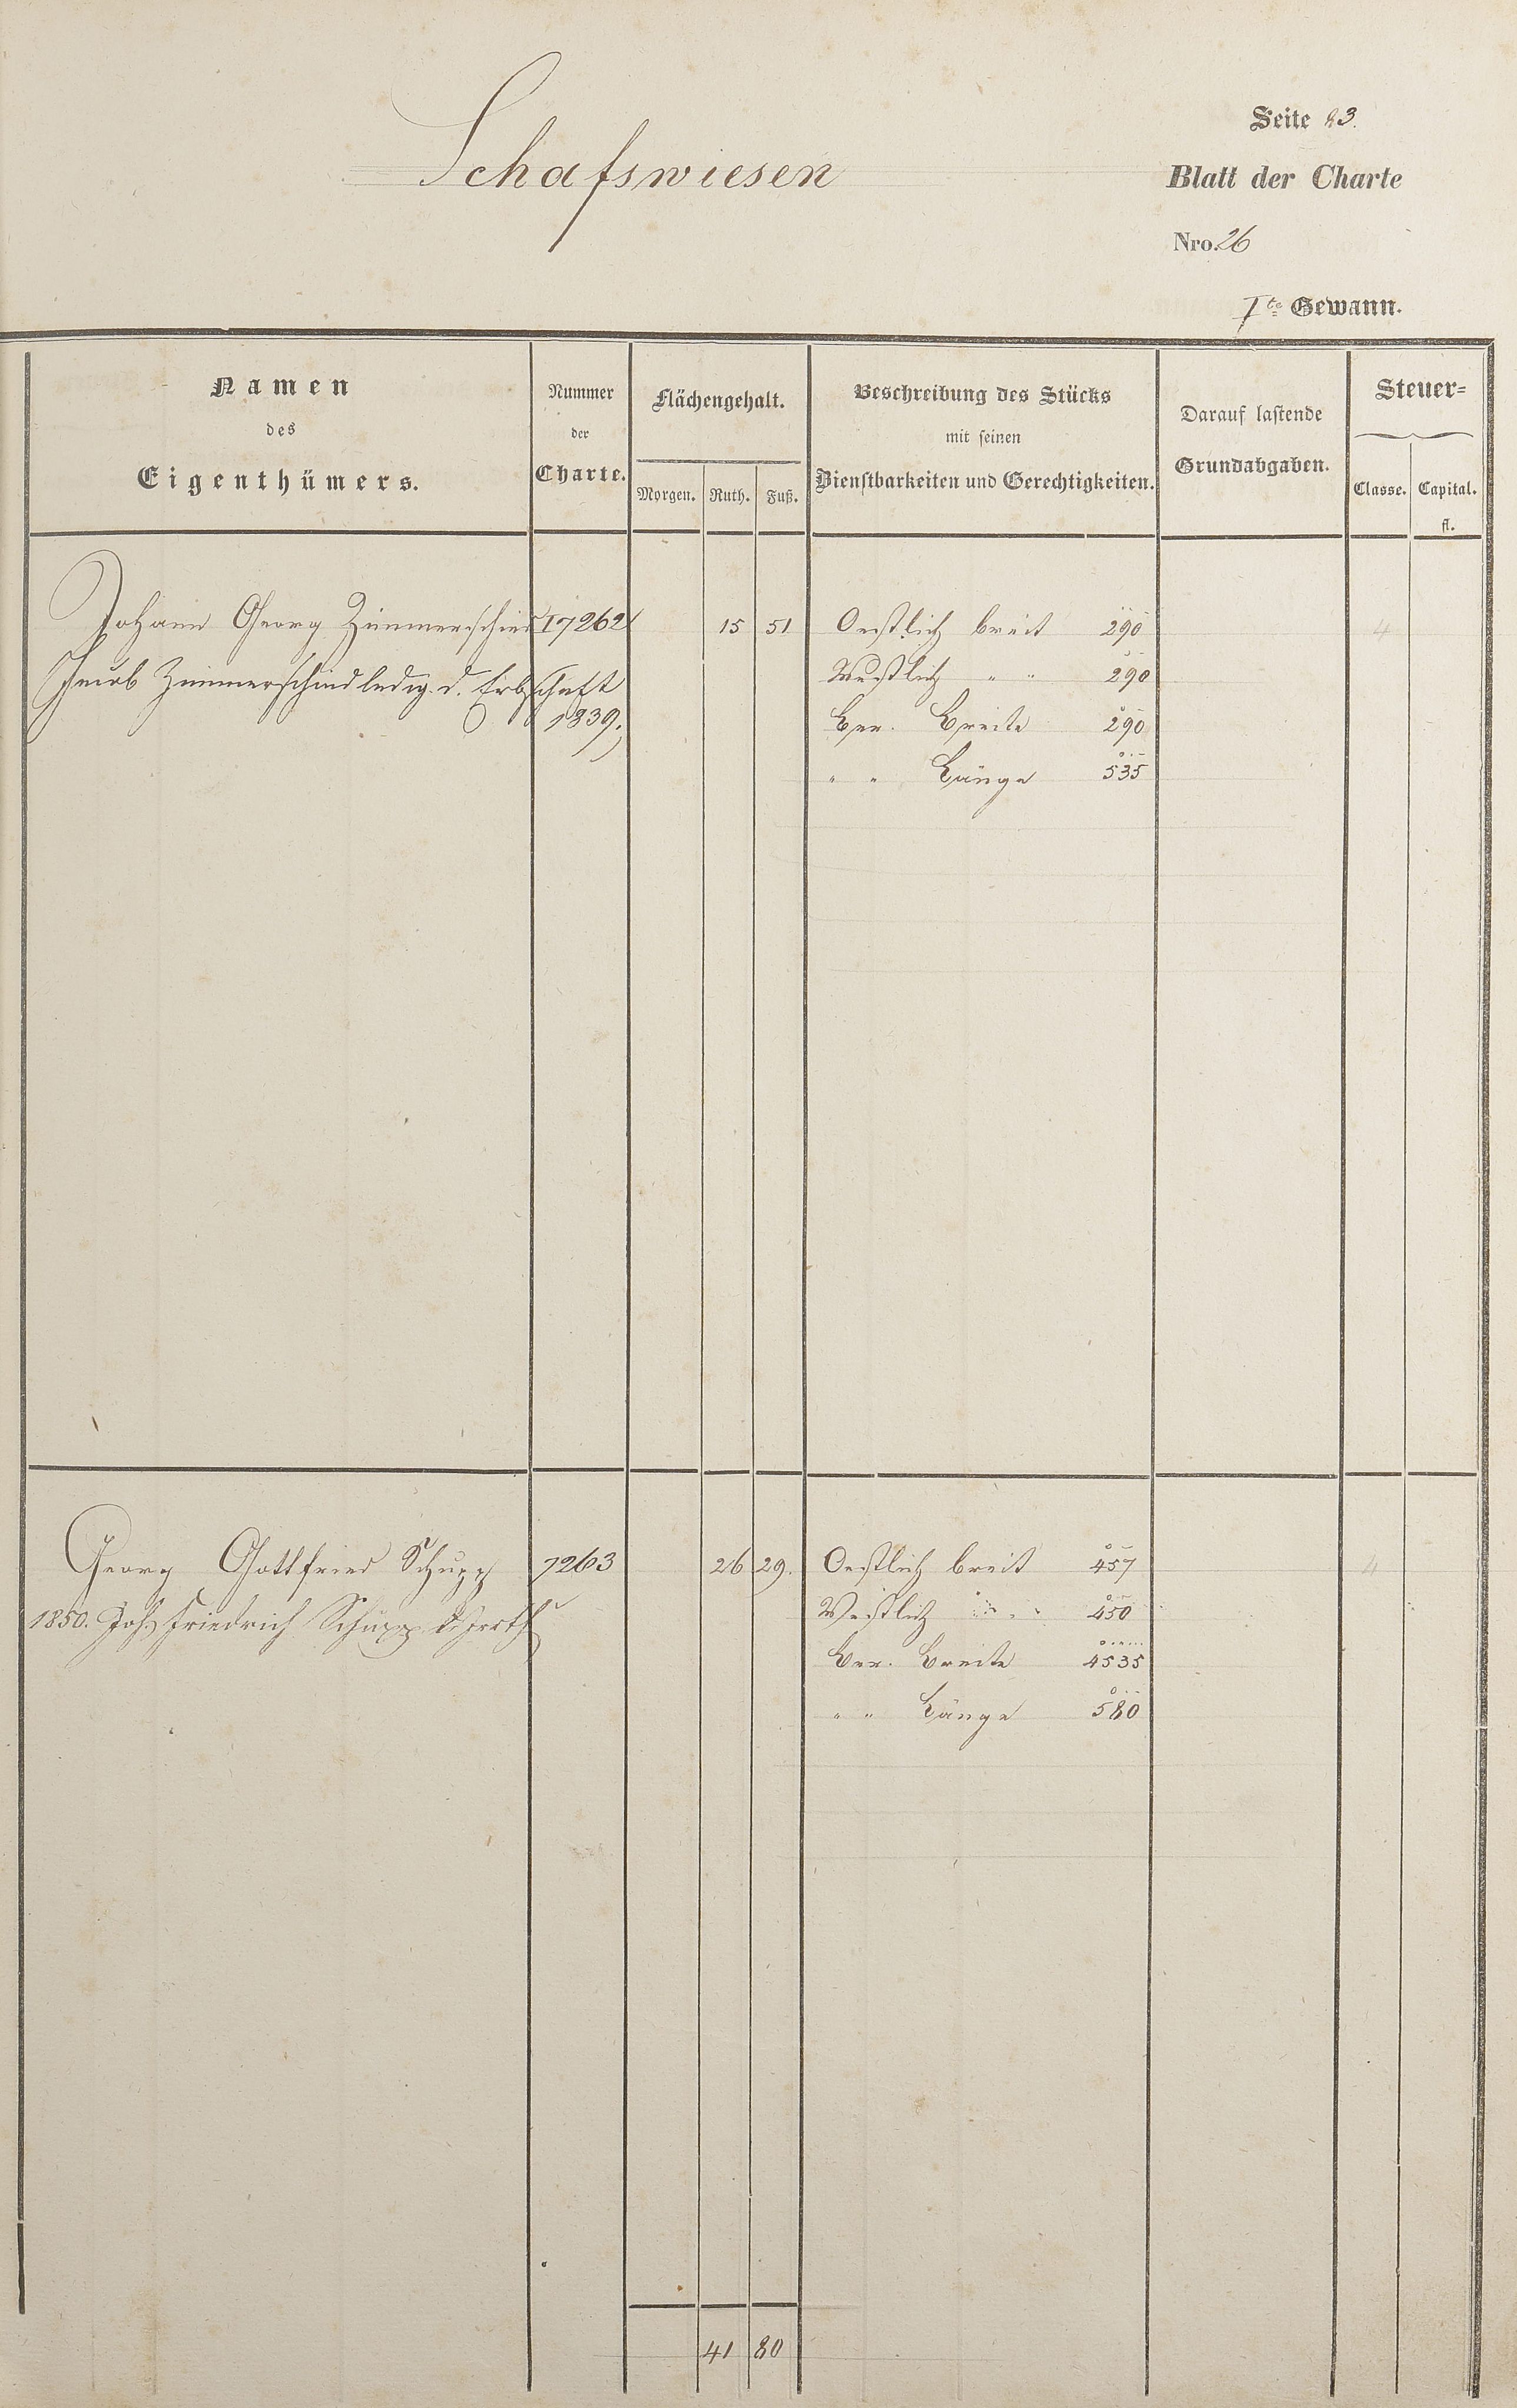 Schafswiesen
Seite 83.
Blatt der Charte
Nro. 26
Ite Gewann.
Namen
des
Eigenthümers.
Nummer
der
Charte.
Flächengehalt.
Morgen. Ruth. Fuß.
Beschreibung des Stücks
mit seinen
Dienstbarkeiten und Gerechtigkeiten.
Darauf lastende
Grundabgaben.
Steuer-
Classe. Capital.
fl.
Johann Georg Zimmerschied 7262 15 51 Oestlich breit 290 4
Jacob Zimmerschied ledig d. Erbschaft Westlich " " 290
1839. Ber. Breite 290
" " Länge 535
Georg Gottfried Schupp 7263 26 29. Oestlich breit 457 4
1850. Johs Friedrich Schupp Westlich " " 450
Ber. Breite 4535
" " Länge 580
41 80